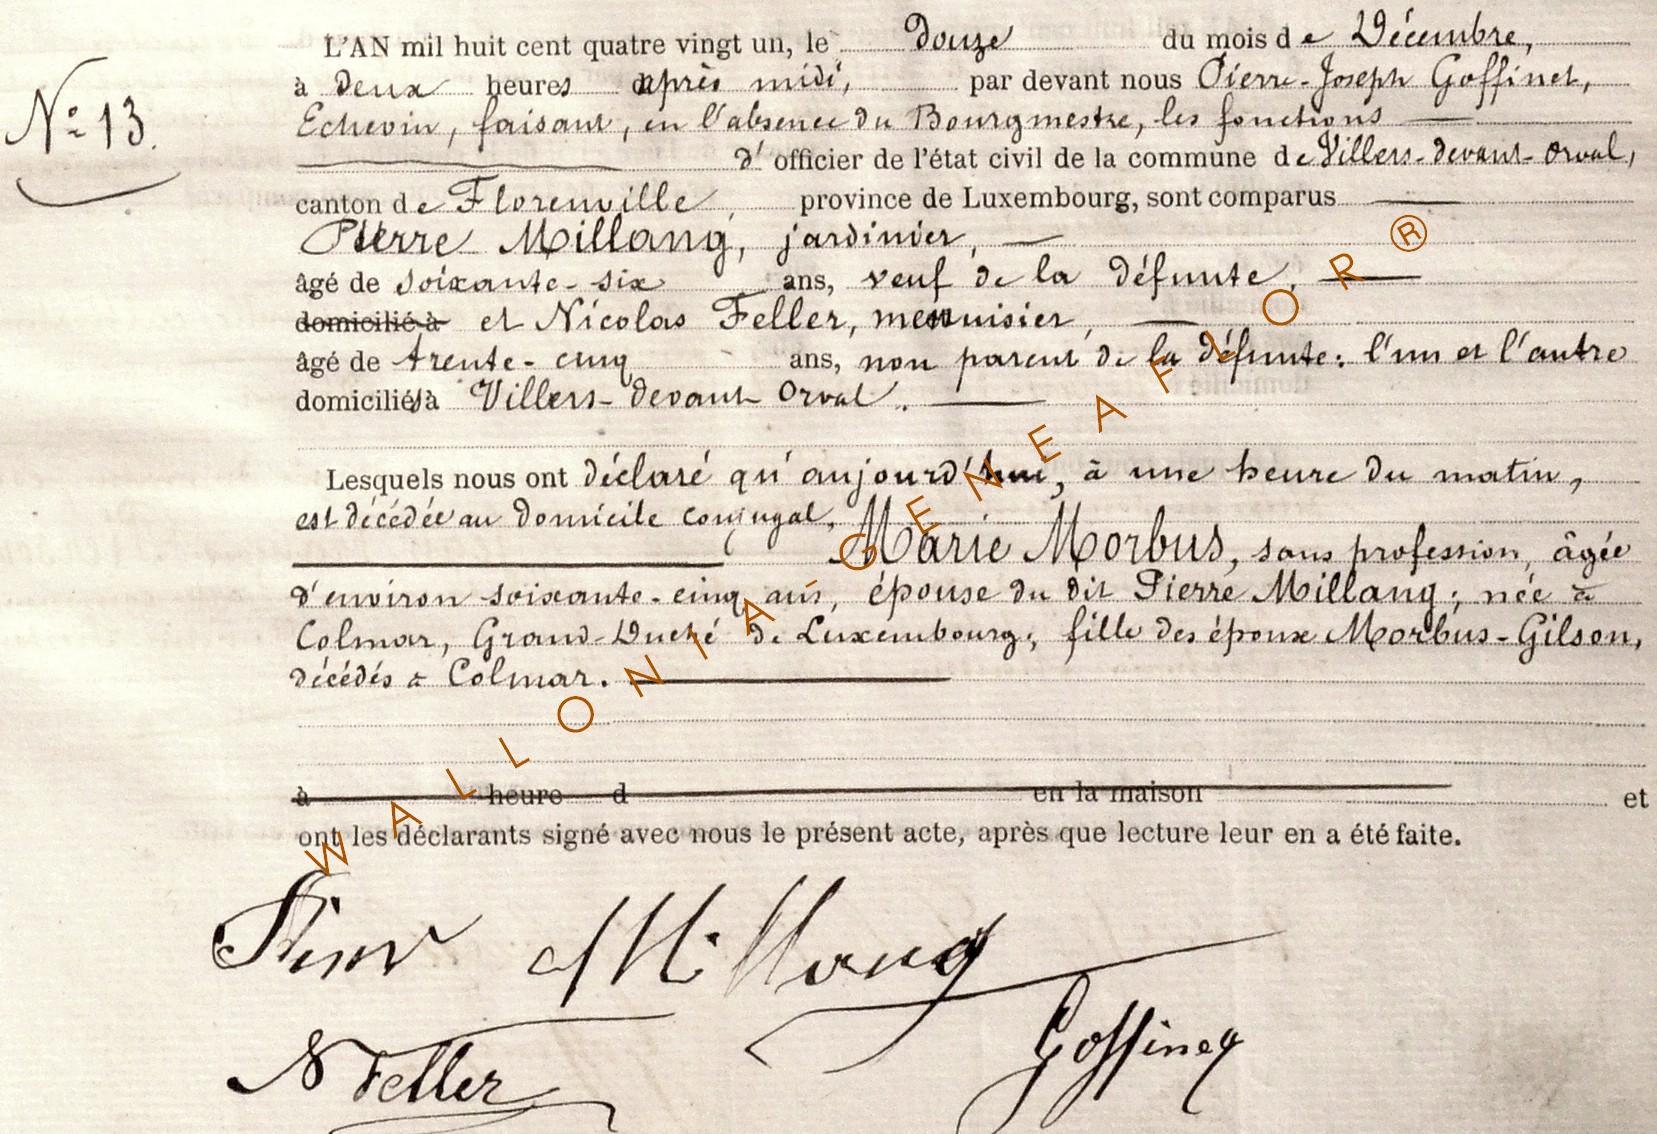 L'AN mil huit cent quatre vingt un, le douze du mois de Décembre,
N° 13.
à deux heures après midi, par devant nous Pierre-Joseph Goffinet,
Echevin, faisant, en l'absence du Bourgmestre, les fonctions
d'officier de l'état civil de la commune de Villers-devant-Orval,
canton de Florenville, province de Luxembourg, sont comparus
Pierre Millang, jardinier,
âgé de soixante-six ans, veuf de la défunte,
domicilié à et Nicolas Feller, menuisier,
âgé de trente-cinq ans, non parent de la défunte: l'un et l'autre
domiciliés à Villers-devant-Orval.
Lesquels nous ont déclaré qu'aujourd'hui, à une heure du matin,
est décédée au domicile conjugal,
Marie Morbus, sans profession, âgée
d'environ soixante-cinq ans, épouse du dit Pierre Millang; née à
Colmar, Grand-Duché de Luxembourg; fille des époux Morbus-Gilson,
décédés à Colmar.
à heure d en la maison et
ont les déclarants signé avec nous le présent acte, après que lecture leur en a été faite.
Pierre Millang
N Feller
Goffinet
WALLONIA-GENEAFLOR®